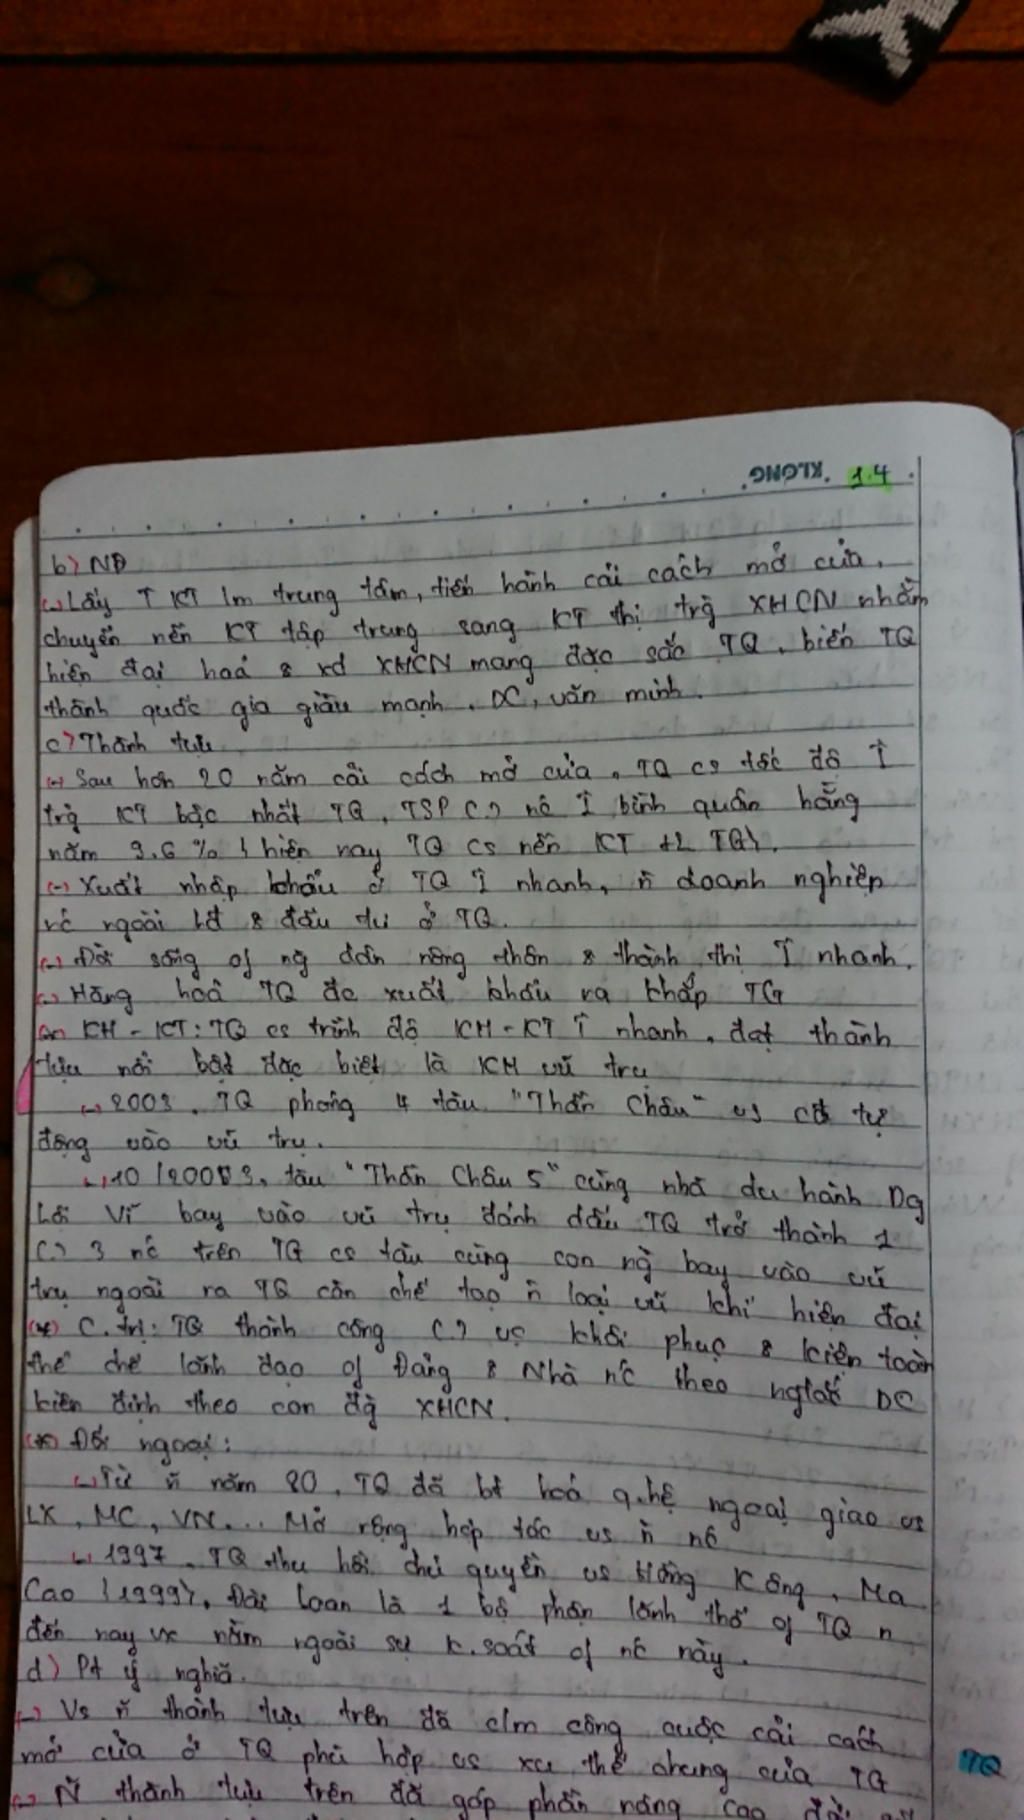 KLONG. 1.4
b) NĐ
(-) Lấy ↑ KT lm trung tâm, tiến hành cải cách mở cửa,
chuyển nền KT tập trung sang KT thị trg̀ XHCN nhằm
hiện đại hoá & xd XHCN mang đặc sắc TQ, biến TQ
thành quốc gia giàu mạnh, DC, văn minh.
c) Thành tựu
(-) Sau hơn 20 năm cải cách mở cửa, TQ cs tốc độ ↑
trg̀ KT bậc nhất TG, TSP nc ↑ bình quân hằng
năm 9.6% hiện nay TQ cs nền KT TG
(-) Xuất nhập khẩu ở TQ ↑ nhanh, ñ doanh nghiệp
nc ngoài & đầu tư ở TQ.
(-) Đời sống of ng dân nông thôn & thành thị ↑ nhanh.
(-) Hàng hoá TQ đc xuất khẩu ra khắp TG
KH - KT: TQ cs trình độ KH - KT ↑ nhanh, đạt thành
tựu nổi bật đặc biệt là KH vũ trụ
(-) 2003, TQ phóng 4 tàu "Thần Châu" vs cđ tự
động vào vũ trụ.
10/2003, tàu "Thần Châu 5" cùng nhà du hành Dg
Lợi Vĩ bay vào vũ trụ đánh dấu TQ trở thành 1
3 nc trên TG cs tàu cùng con ng̀ bay vào vũ
trụ ngoài ra TQ còn chế tạo ñ loại vũ khí hiện đại
(*) C.trị: TQ thành công vc khôi phục & kiện toàn
thể chế lãnh đạo of Đảng & Nhà nc theo ngtắc DC
kiên định theo con đg̀ XHCN.
(*) Đối ngoại:
(-) Từ ñ năm 80, TQ đã bt hoá q.hệ ngoại giao vs
LX, MC, VN... Mở rộng hợp tác vs ñ nc
(-) 1997, TQ thu hồi chủ quyền vs Hồng Kông, Ma
Cao {1999}, Đài Loan là 1 bộ phận lãnh thổ of TQ n
đến nay vx nằm ngoài sự k.soát of nc này.
d) Pt ý nghĩa.
(-) Vs ñ thành tựu trên đã c/m công cuộc cải cách
mở cửa ở TQ phù hợp vs xu thế chung của TG
TQ
(-) Ñ thành tựu trên đã góp phần nâng cao